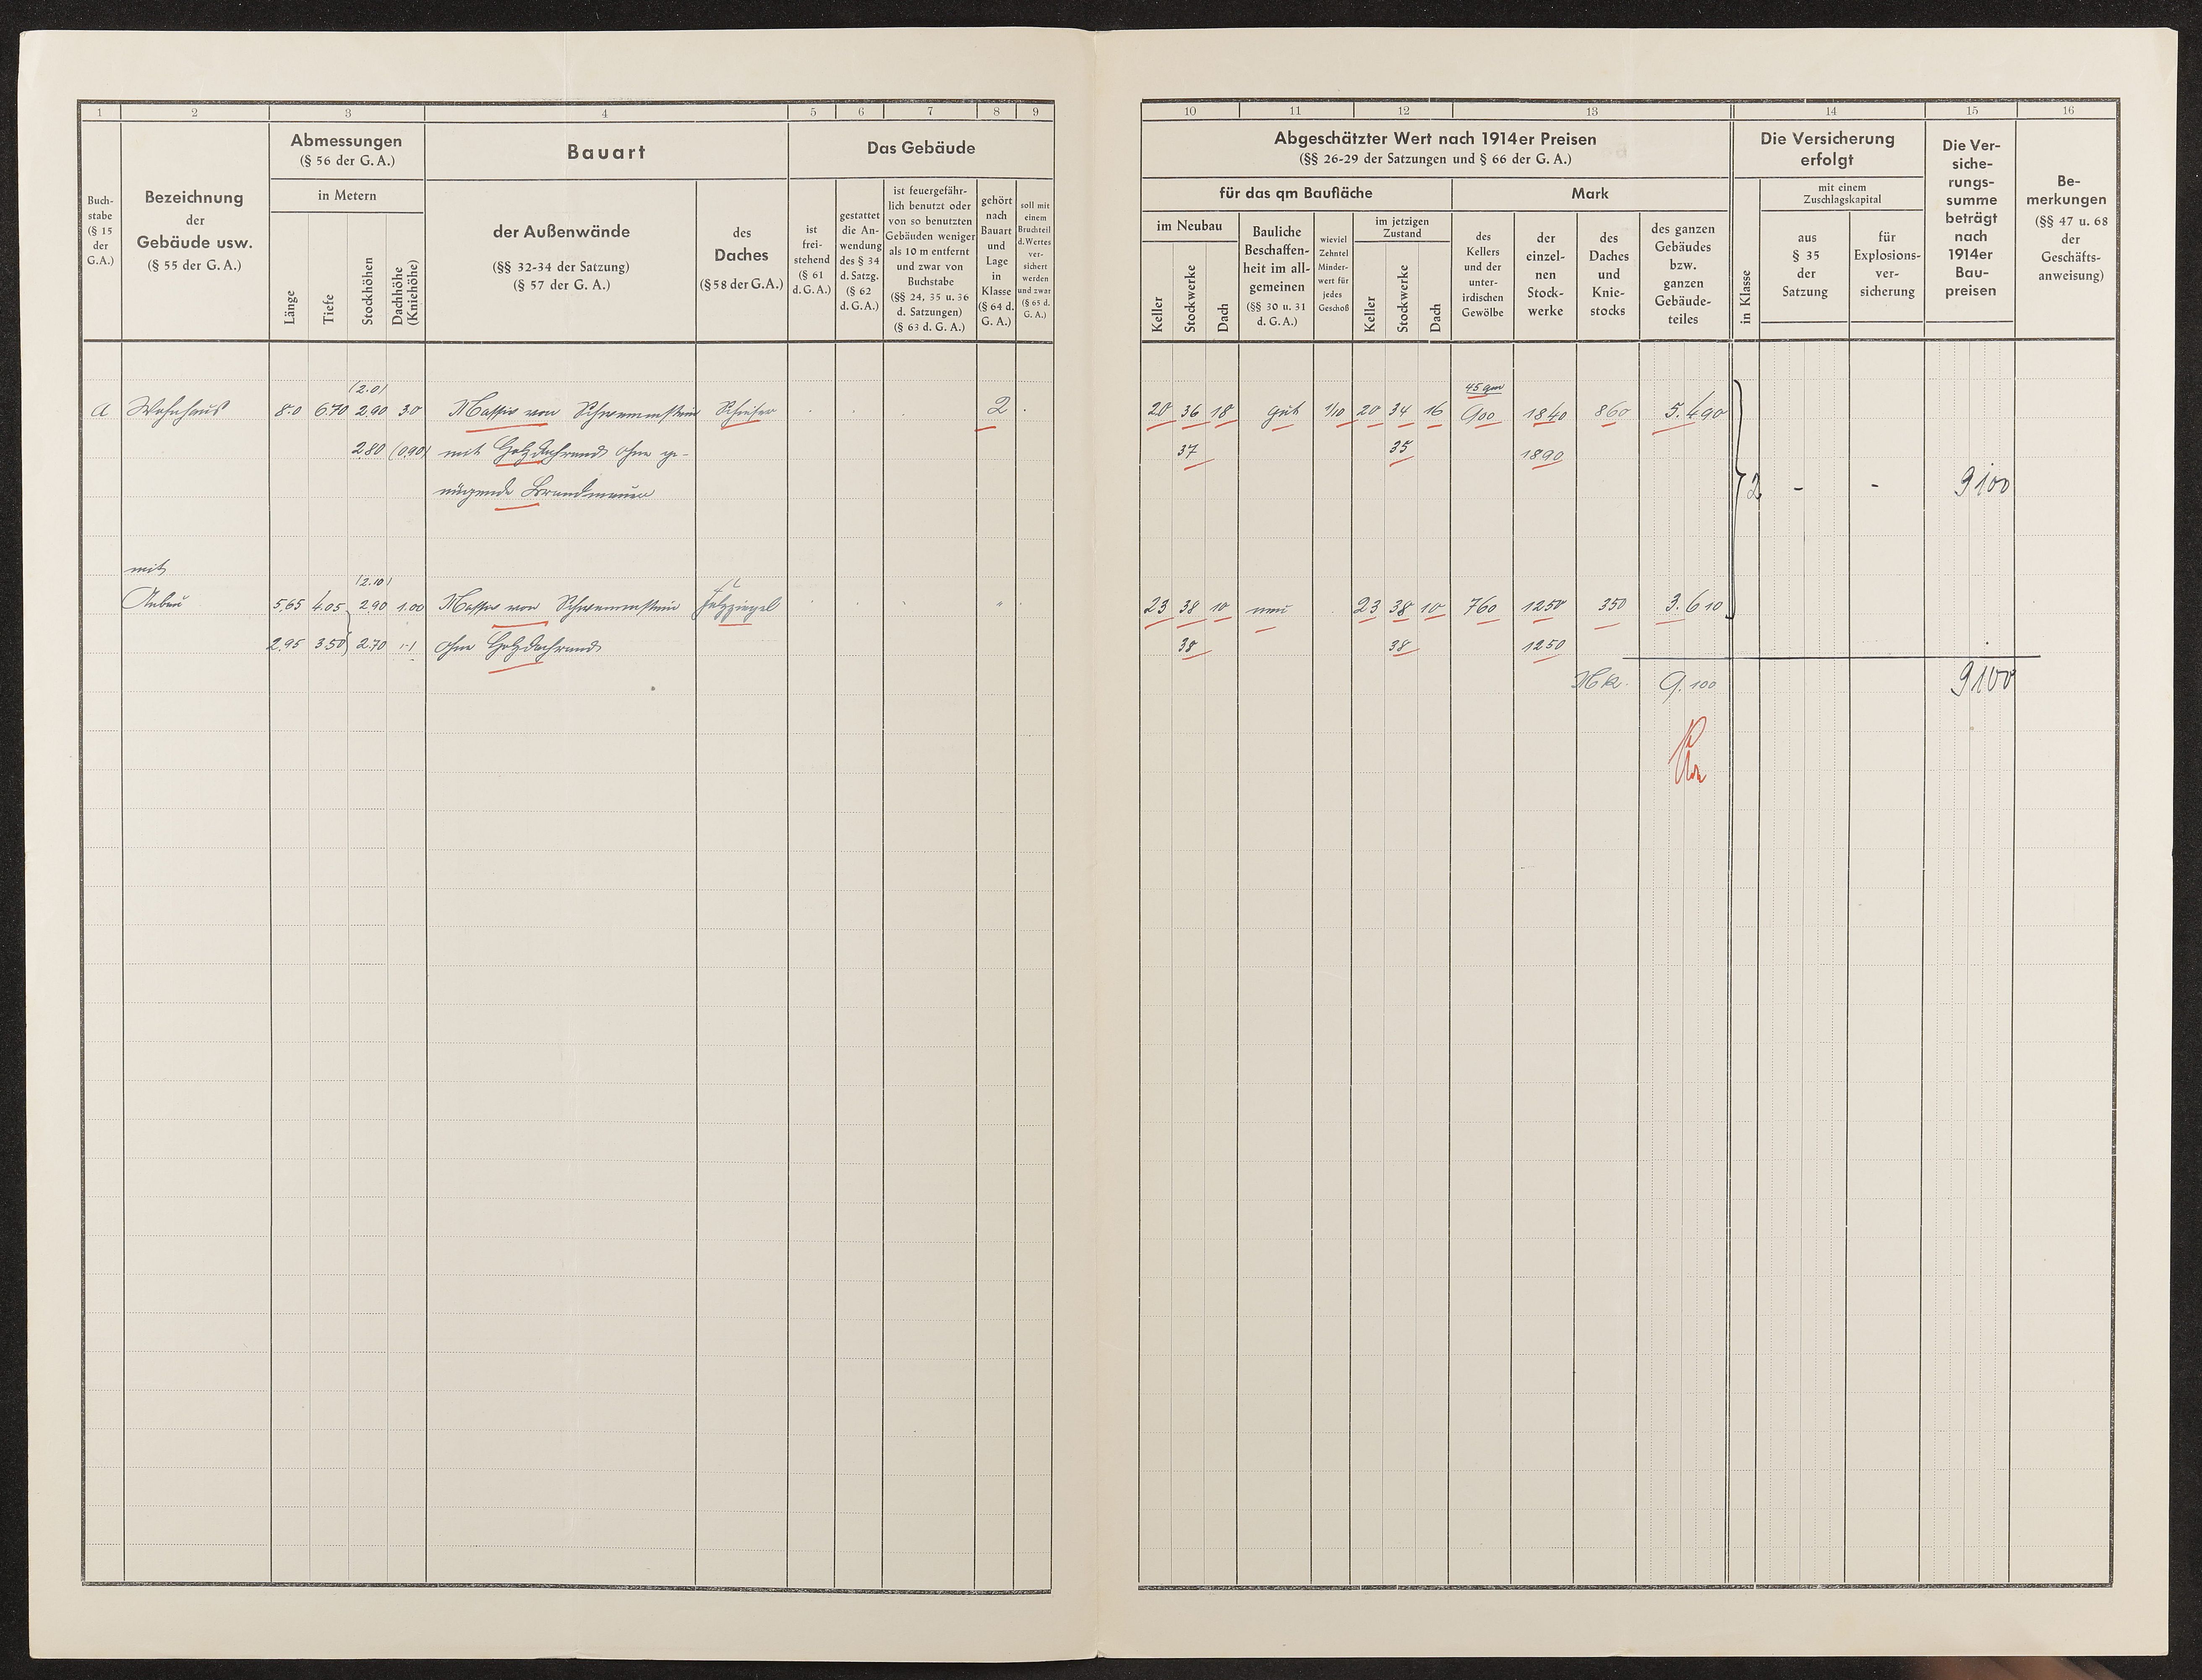 1 2 3 4 5 6 7 8 9
Abmessungen
(§ 56 der G. A.)
Bauart
Das Gebäude
Buch-
stabe
(§ 15
der
G.A.)
Bezeichnung
der
Gebäude usw.
(§ 55 der G. A.)
in Metern
Länge
Tiefe
Stockhöhen
Dachhöhe
(Kniehöhe)
der Außenwände
(§§ 32-34 der Satzung)
(§ 57 der G. A.)
des
Daches
(§ 58 der G. A.)
ist
frei-
stehend
(§ 61
d. G. A.)
gestattet
die An-
wendung
des § 34
d. Satzg.
(§ 62
d. G. A.)
ist feuergefähr-
lich benutzt oder
von so benutzten
Gebäuden weniger
als 10 m entfernt
und zwar von
Buchstabe
(§§ 24, 35 u. 36
d. Satzungen)
(§ 63 d. G. A.)
gehört
nach
Bauart
und
Lage
in
Klasse
(§ 64 d.
G. A.)
soll mit
einem
Bruchteil
d. Wertes
ver-
sichert
werden
und zwar
(§ 65 d.
G. A.)
(2.0)
a Wohnhaus 8.0 6.70 2.90 3.0 Massiv von Schwemmstein Schiefer 2
2.80 (0.90) mit Holzdachrand ohne ge-
nügende Brandmauer
mit
(2.10)
Anbau 5,65 4.05 2.90 1.00 Massiv von Schwemmstein Falzziegel "
2.95 3.50 2.70 (-) ohne Holzdachrand
10 11 12 13 14 15 16
Abgeschätzter Wert nach 1914er Preisen
(§§ 26-29 der Satzungen und § 66 der G. A.)
Die Versicherung
erfolgt
Die Ver-
siche-
rungs-
summe
beträgt
nach
1914er
Bau-
preisen
Be-
merkungen
(§§ 47 u. 68
der
Geschäfts-
anweisung)
für das qm Baufläche
Mark
mit einem
Zuschlagskapital
im Neubau
Keller
Stockwerke
Dach
Bauliche
Beschaffen-
heit im all-
gemeinen
(§§ 30 u. 31
d. G. A.)
wieviel
Zehntel
Minder-
wert für
jedes
Geschoß
im jetzigen
Zustand
Keller
Stockwerke
Dach
des
Kellers
und der
unter-
irdischen
Gewölbe
der
einzel-
nen
Stock-
werke
des
Daches
und
Knie-
stocks
des ganzen
Gebäudes
bzw.
ganzen
Gebäude-
teiles
in Klasse
aus
§ 35
der
Satzung
für
Explosions-
ver-
sicherung
45 qm
20 36 18 gut 1/10 20 34 16 900 1840 860 5.490
37 35 1890
2 - - 9100
23 38 10 neu 23 38 10 760 1250 350 3.610
38 38 1250
Mk. 9.100 9100